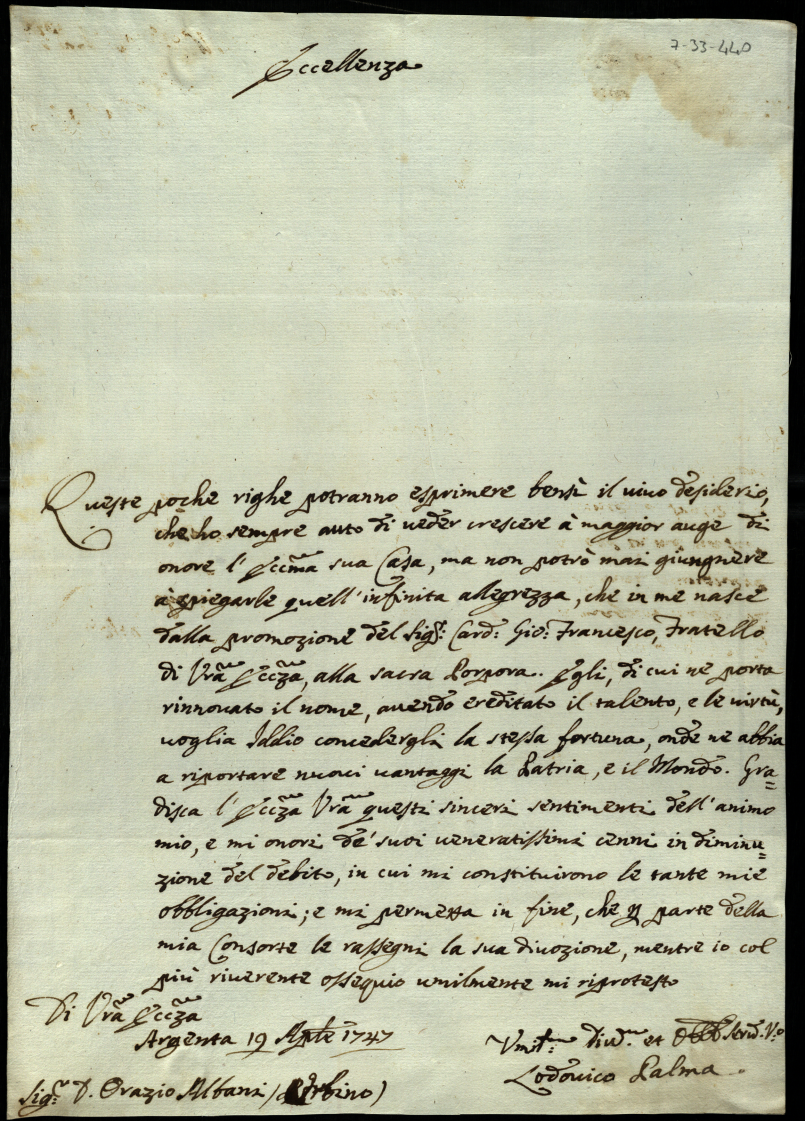 7-33-440
Eccellenza
Queste poche righe potranno esprimere bensì il vivo desiderio,
che ho sempre auto di veder crescere à maggior auge di
onore l'Eccma sua Casa, ma non potrò mai giungnere
à spiegarle quell'infinita allegrezza, che in me nasce
dalla promozione del Sigr: Card: Gio: Francesco, Fratello
di Vra Eccza, alla sacra Porpora. Egli, di cui ne porta
rinnovato il nome, avendo ereditato il talento, e le virtù,
voglia Iddio concedergli la stessa fortuna, onde ne abbia
a riportare nuovi vantaggi la Patria, e il Mondo. Gra=
disca l'Eccza Vra questi sinceri sentimenti dell'animo
mio, e mi onori de' suoi veneratissimi cenni in diminu=
zione del debito, in cui mi constituirono le tante mie
obbligazioni; e mi permetta in fine, che p parte della
mia Consorte le rassegni la sua divozione, mentre io col
più riverente ossequio umilmente mi riprotesto
Di Vra Eccza
Argenta 19 Aple 1747
Umil: Div: et Obb Servid: Vo
Lodovico Palma
Sigr D. Orazio Albani (Urbino)